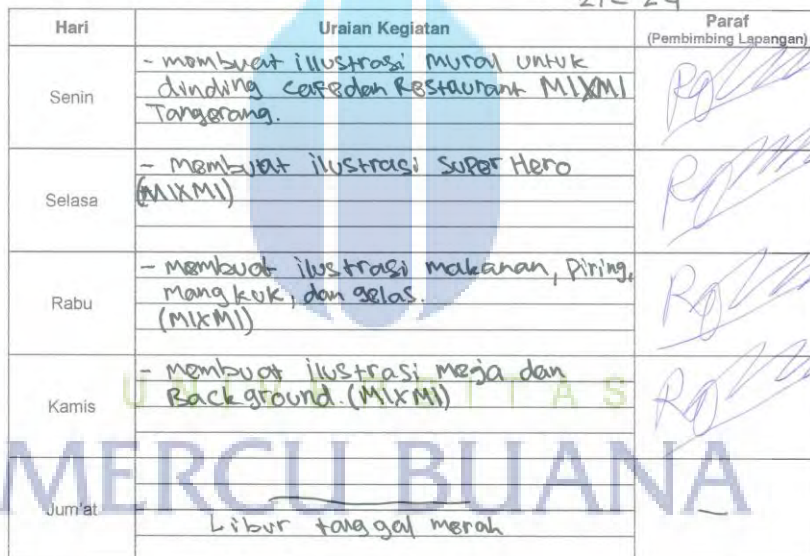 Hari Uraian Kegiatan Paraf
(Pembimbing Lapangan)
Senin
- membuat illustrasi mural untuk
dinding cafe dan Restaurant MIXMI
Tangerang.
Selasa
- membuat ilustrasi super Hero
(MIXMI)
Rabu
- membuat ilustrasi makanan, piring,
mangkuk, dan gelas.
(MIXMI)
Kamis
- membuat ilustrasi meja dan
Background. (MIXMI)
UNIVERSITAS
MERCU BUANA
Jum'at
Libur tanggal merah